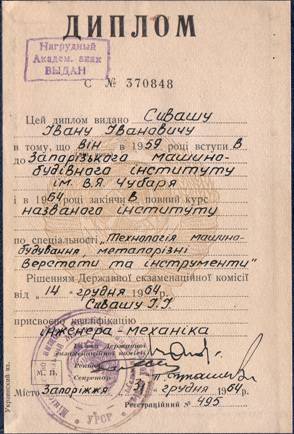 ДИПЛОМ
Нагрудный
Академ. знак
ВЫДАН
С № 370848
Цей диплом видано Сивашу
Івану Івановичу
в тому, що він в 1959 році вступив
до Запорізького машино-
будівного інституту
ім. В.Я. Чубаря
і в 1964 році закінчив повний курс
названого інституту
по спеціальності „Технологія машино-
будування, металорізні
верстати та інструменти"
Рішенням Державної екзаменаційної комісії
від „14" грудня 1964 р.
Сивашу І.І.
присвоєно кваліфікацію
інженера-механіка
Голова Державної
екзаменаційної комісії
Ректор
Секретар
М. П.
Місто Запоріжжя „31" грудня 1964 р.
Реєстраційний № 495
Украинский яз.
УРСР